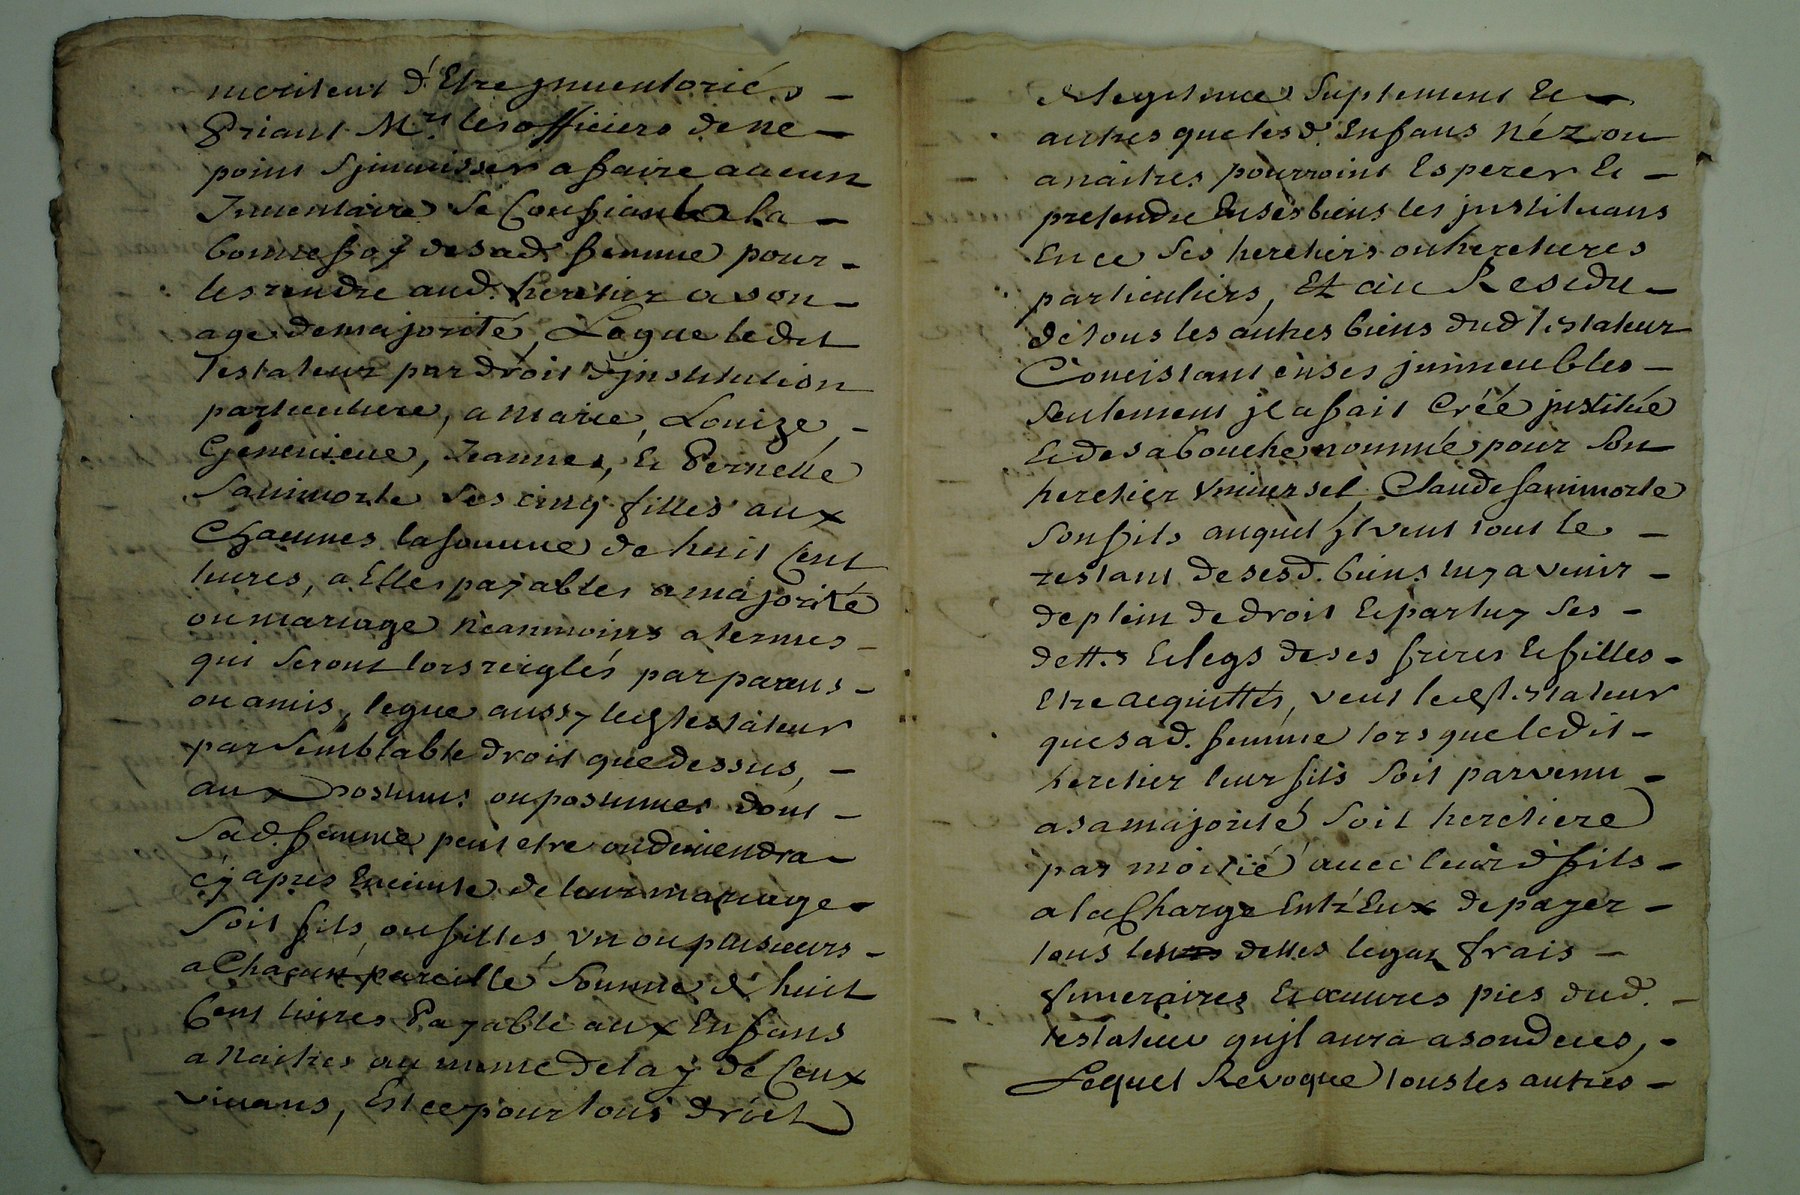 meritent d'Etre jnventoriés –
Priant Mrs les officiers de ne –
point S'jmmisser a faire aucun
Inventaire se Confiant a la –
bonne foy de sad. femme pour –
les rendre aud. heretier a son –
age de majorité, Legue le dit
Testateur par droit d'jnstitution
particuliere, a Marie, Louize, –
Genevieve, Jeanne, Et Pernette
Sanimorte ses cinq filles aux
Chacunes la somme de huit Cent
livres, a Elles payables a majorité
ou mariage neanmoins a termes –
qui seront lors reiglés par parans –
ou amis, legue aussy led. testateur
par semblable droit que dessus, –
aux postumes ou postumes dont –
Sad. femme peut etre ou deviendra –
cy apres Enceinte de leur mariage –
soit fils, ou filles, un ou plusieurs –
a Chacun pareille somme de huit
Cent livres Payable aux Enfans
a Naitres au meme delay de Ceux
vivans, Et ce pour tous droit
de legitime Suplement Et –
autres que lesd. Enfans Néz ou
a naitres pourroint Esperer Et –
pretendre En ses biens les jnstituans
En ce ses heretiers ou heretieres
particuliers, Et au Residu –
de tous les autres biens dud testateur
Concistant en ses jmmeubles –
seulement jl a fait Créé jnstitué
Et de sa bouche nommé pour Son
heretier Universel Claude Sanimorte
Son fils auquel jl veut tout le –
restant de sesd. biens luy avenir –
de plein de droit Et par luy Ses –
dettes Et legs de ses freres Et filles –
Etre acquittés, veut led. testateur
que sad. femme lors que ledit –
heretier leur fils soit parvenu –
a sa majorité soit heretiere
par moitié avec leurd. fils –
a la Charge Entr'Eux de payer –
tous les dettes legaz frais –
funeraires Et œuvres pies dud. –
testateur qu'jl aura a son deces, –
Lequel Revoque tous les autres –